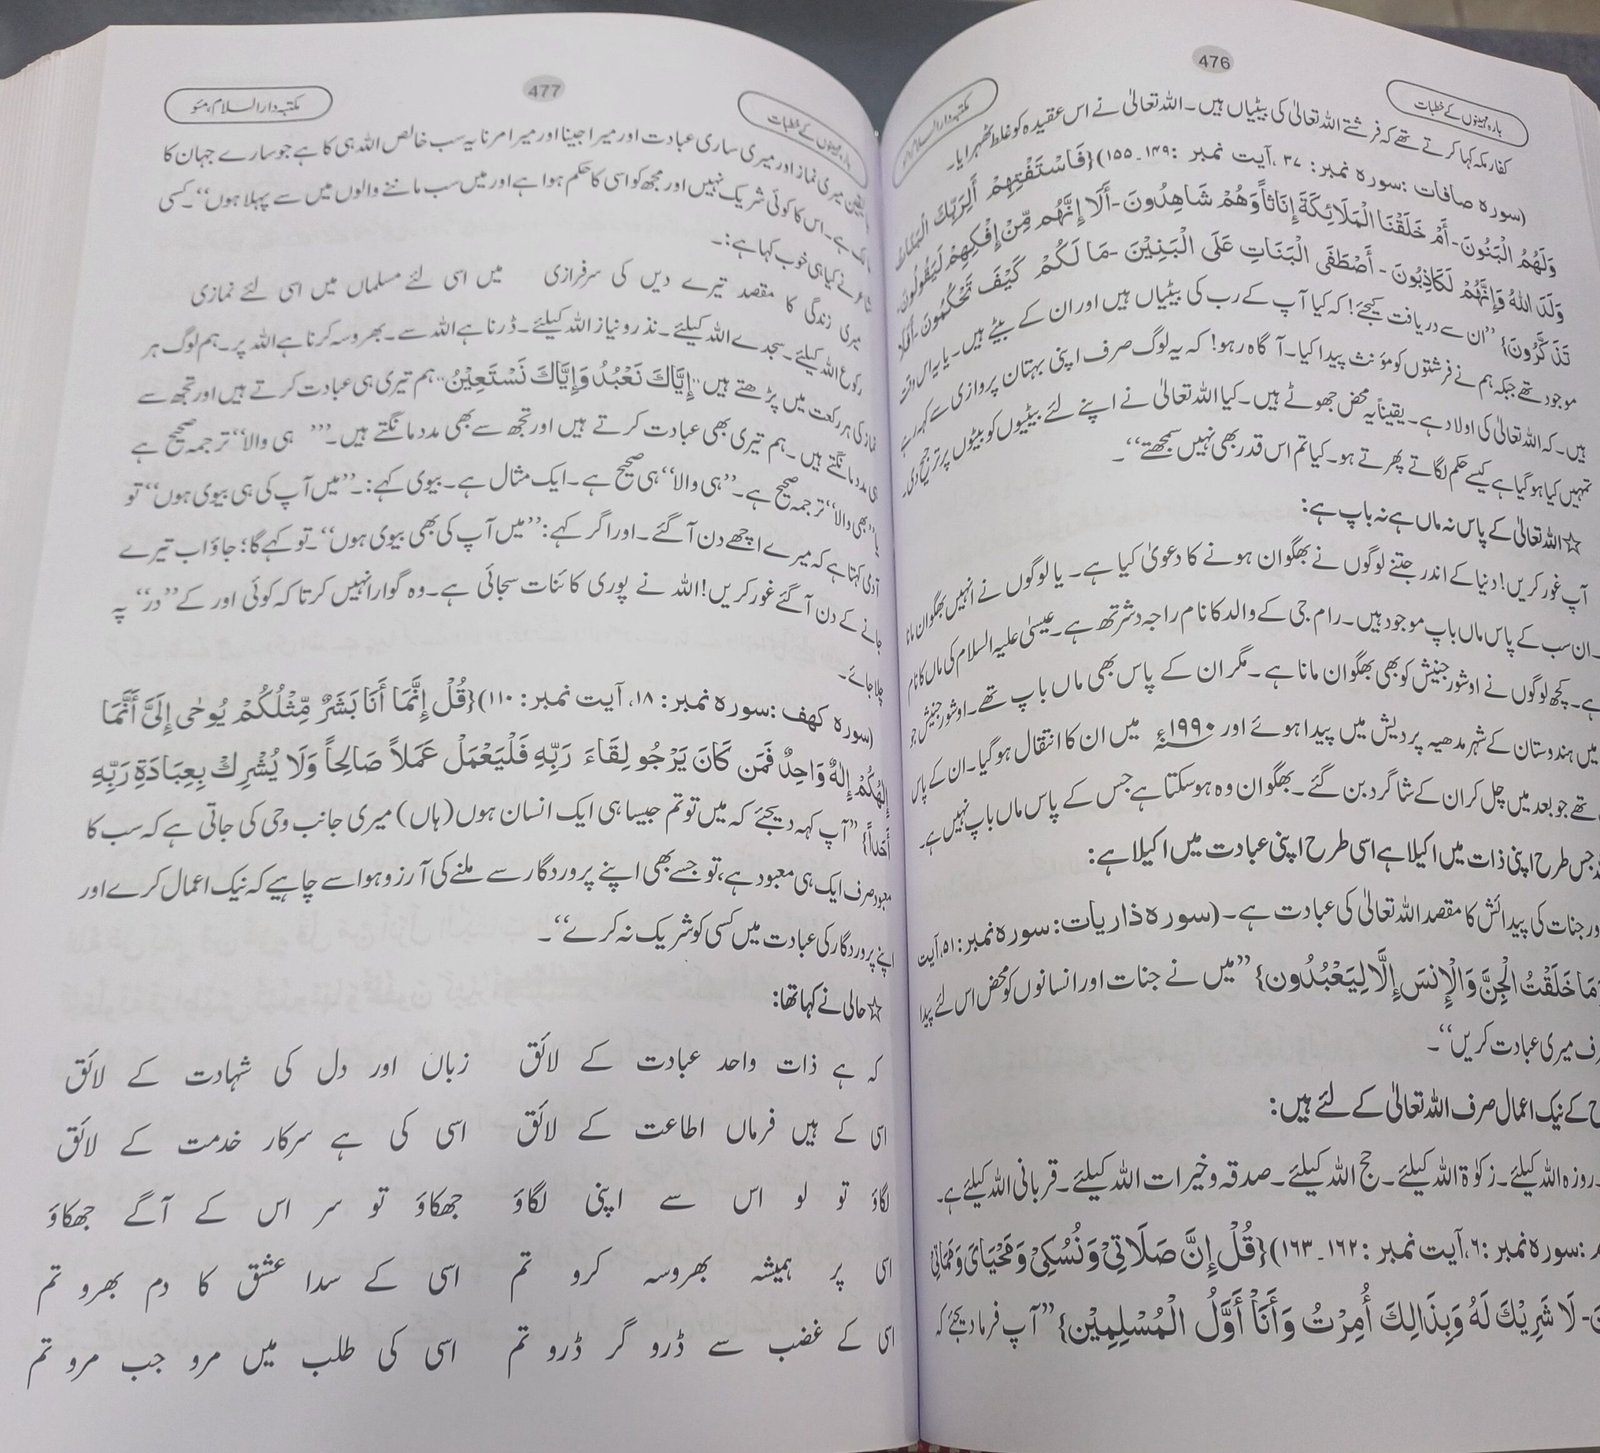 476
بارہ مہینوں کے خطبات
مکتبہ دار السلام، مئو
کفار مکہ کہا کرتے تھے کہ فرشتے اللہ تعالیٰ کی بیٹیاں ہیں۔ اللہ تعالیٰ نے اس عقیدہ کو غلط ٹھہرایا۔
(سورہ صافات :سورہ نمبر: ۳۷ ،آیت نمبر :۱۴۹۔۱۵۵){فَاسْتَفْتِهِمْ أَلِرَبِّكَ الْبَنَاتُ
وَلَهُمُ الْبَنُونَ- أَمْ خَلَقْنَا الْمَلَائِكَةَ إِنَاثاً وَهُمْ شَاهِدُونَ-أَلَا إِنَّهُم مِّنْ إِفْكِهِمْ لَيَقُولُونَ-
وَلَدَ اللهُ وَإِنَّهُمْ لَكَاذِبُونَ- أَصْطَفَى الْبَنَاتِ عَلَى الْبَنِيْنَ -مَا لَكُمْ كَيْفَ تَحْكُمُونَ-أَفَلَا
تَذَكَّرُونَ} ’’ان سے دریافت کیجئے! کہ کیا آپ کے رب کی بیٹیاں ہیں اور ان کے بیٹے ہیں۔ یا یہ اس وقت
موجود تھے جبکہ ہم نے فرشتوں کو مؤنث پیدا کیا۔ آگاہ رہو! کہ یہ لوگ صرف اپنی بہتان پروازی سے کہہ رہے
ہیں۔ کہ اللہ تعالیٰ کی اولاد ہے۔ یقیناً یہ محض جھوٹے ہیں۔ کیا اللہ تعالیٰ نے اپنے لئے بیٹیوں کو بیٹوں پر ترجیح دی۔
تمہیں کیا ہو گیا ہے کیسے حکم لگاتے پھرتے ہو۔ کیا تم اس قدر بھی نہیں سمجھتے‘‘۔
☆اللہ تعالیٰ کے پاس نہ ماں ہے نہ باپ ہے:
آپ غور کریں! دنیا کے اندر جتنے لوگوں نے بھگوان ہونے کا دعویٰ کیا ہے۔ یا لوگوں نے انہیں بھگوان مانا
۔ان سب کے پاس ماں باپ موجود ہیں۔ رام جی کے والد کا نام راجہ دشرتھ ہے۔ عیسیٰ علیہ السلام کی ماں کا نام
ہے۔ کچھ لوگوں نے اوشور جنیش کو بھی بھگوان مانا ہے۔ مگر ان کے پاس بھی ماں باپ تھے۔ اوشور جنیش جو
میں ہندوستان کے شہر مدھیہ پردیش میں پیدا ہوئے اور ۱۹۹۰ء میں ان کا انتقال ہو گیا۔ ان کے پاس
تھے جو بعد میں چل کر ان کے شاگرد بن گئے۔ بھگوان وہ ہو سکتا ہے جس کے پاس ماں باپ نہیں ہے۔
جس طرح اپنی ذات میں اکیلا ہے اسی طرح اپنی عبادت میں اکیلا ہے:
اور جنات کی پیدائش کا مقصد اللہ تعالیٰ کی عبادت ہے۔ (سورہ ذاریات: سورہ نمبر: ۵۱، آیت
وَمَا خَلَقْتُ الْجِنَّ وَالْإِنسَ إِلَّا لِيَعْبُدُون} ’’میں نے جنات اور انسانوں کو محض اس لئے پیدا
میری عبادت کریں‘‘۔
کے نیک اعمال صرف اللہ تعالیٰ کے لئے ہیں:
۔روزہ اللہ کیلئے۔ زکوٰۃ اللہ کیلئے۔ حج اللہ کیلئے۔ صدقہ وخیرات اللہ کیلئے۔ قربانی اللہ کیلئے ہے۔
:سورہ نمبر :۶،آیت نمبر :۱۶۲۔۱۶۳){قُلْ إِنَّ صَلَاتِيْ وَنُسُكِيْ وَمَحْيَايَ وَمَمَاتِيْ
- لَا شَرِيْكَ لَهُ وَبِذَالِكَ أُمِرْتُ وَأَنَاْ أَوَّلُ الْمُسْلِمِيْن} ’’آپ فرما دیجئے کہ
477
بارہ مہینوں کے خطبات
مکتبہ دار السلام، مئو
میری نماز اور میری ساری عبادت اور میرا جینا اور میرا مرنا یہ سب خالص اللہ ہی کا ہے جو سارے جہان کا
ہے۔ اس کا کوئی شریک نہیں اور مجھ کو اسی کا حکم ہوا ہے اور میں سب ماننے والوں میں سے پہلا ہوں‘‘۔ کسی
نے کیا ہی خوب کہا ہے:۔
میری زندگی کا مقصد تیرے دیں کی سرفرازی میں اسی لئے مسلماں میں اسی لئے نمازی
رکوع اللہ کیلئے۔ سجدے اللہ کیلئے۔ نذر و نیاز اللہ کیلئے۔ ڈرنا ہے اللہ سے۔ بھروسہ کرنا ہے اللہ پر۔ ہم لوگ ہر
نماز کی ہر رکعت میں پڑھتے ہیں’’إِيَّاكَ نَعْبُدُ وَإِيَّاكَ نَسْتَعِيْنُ‘‘ہم تیری ہی عبادت کرتے ہیں اور تجھ سے
ہی مدد مانگتے ہیں۔ ہم تیری بھی عبادت کرتے ہیں اور تجھ سے بھی مدد مانگتے ہیں۔’’’ ہی والا‘‘ ترجمہ صحیح ہے
’’بھی والا‘‘ ترجمہ صحیح ہے۔ ’’ہی والا‘‘ ہی صحیح ہے۔ ایک مثال ہے۔ بیوی کہے:۔’’میں آپ کی ہی بیوی ہوں‘‘ تو
آدمی کہتا ہے کہ میرے اچھے دن آ گئے۔ اور اگر کہے: ’’میں آپ کی بھی بیوی ہوں‘‘۔ تو کہے گا؛ جاؤ اب تیرے
جانے کے دن آ گئے غور کریں! اللہ نے پوری کائنات سجائی ہے۔ وہ گوارا نہیں کرتا کہ کوئی اور کے ’’در‘‘ پہ
چلا جائے۔
(سورہ کھف :سورہ نمبر: ۱۸، آیت نمبر: ۱۱۰){قُلْ إِنَّمَا أَنَا بَشَرٌ مِّثْلُكُمْ يُوحٰى إِلَيَّ أَنَّمَا
إِلٰهُكُمْ إِلهٌ وَاحِدٌ فَمَن كَانَ يَرْجُو لِقَاءَ رَبِّهِ فَلْيَعْمَلْ عَمَلاً صَالِحاً وَلَا يُشْرِكْ بِعِبَادَةِ رَبِّهِ
أَحَداً} ’’آپ کہہ دیجئے کہ میں تو تم جیسا ہی ایک انسان ہوں (ہاں) میری جانب وحی کی جاتی ہے کہ سب کا
معبود صرف ایک ہی معبود ہے، تو جسے بھی اپنے پروردگار سے ملنے کی آرزو ہو اسے چاہیے کہ نیک اعمال کرے اور
اپنے پروردگار کی عبادت میں کسی کو شریک نہ کرے‘‘۔
☆حالی نے کہا تھا:
کہ ہے ذات واحد عبادت کے لائق زباں اور دل کی شہادت کے لائق
اسی کے ہیں فرماں اطاعت کے لائق اسی کی ہے سرکار خدمت کے لائق
لگاؤ تو لو اس سے اپنی لگاؤ جھکاؤ تو سر اس کے آگے جھکاؤ
اسی پر ہمیشہ بھروسہ کرو تم اسی کے سدا عشق کا دم بھرو تم
اسی کے غضب سے ڈرو گر ڈرو تم اسی کی طلب میں مرو جب مرو تم